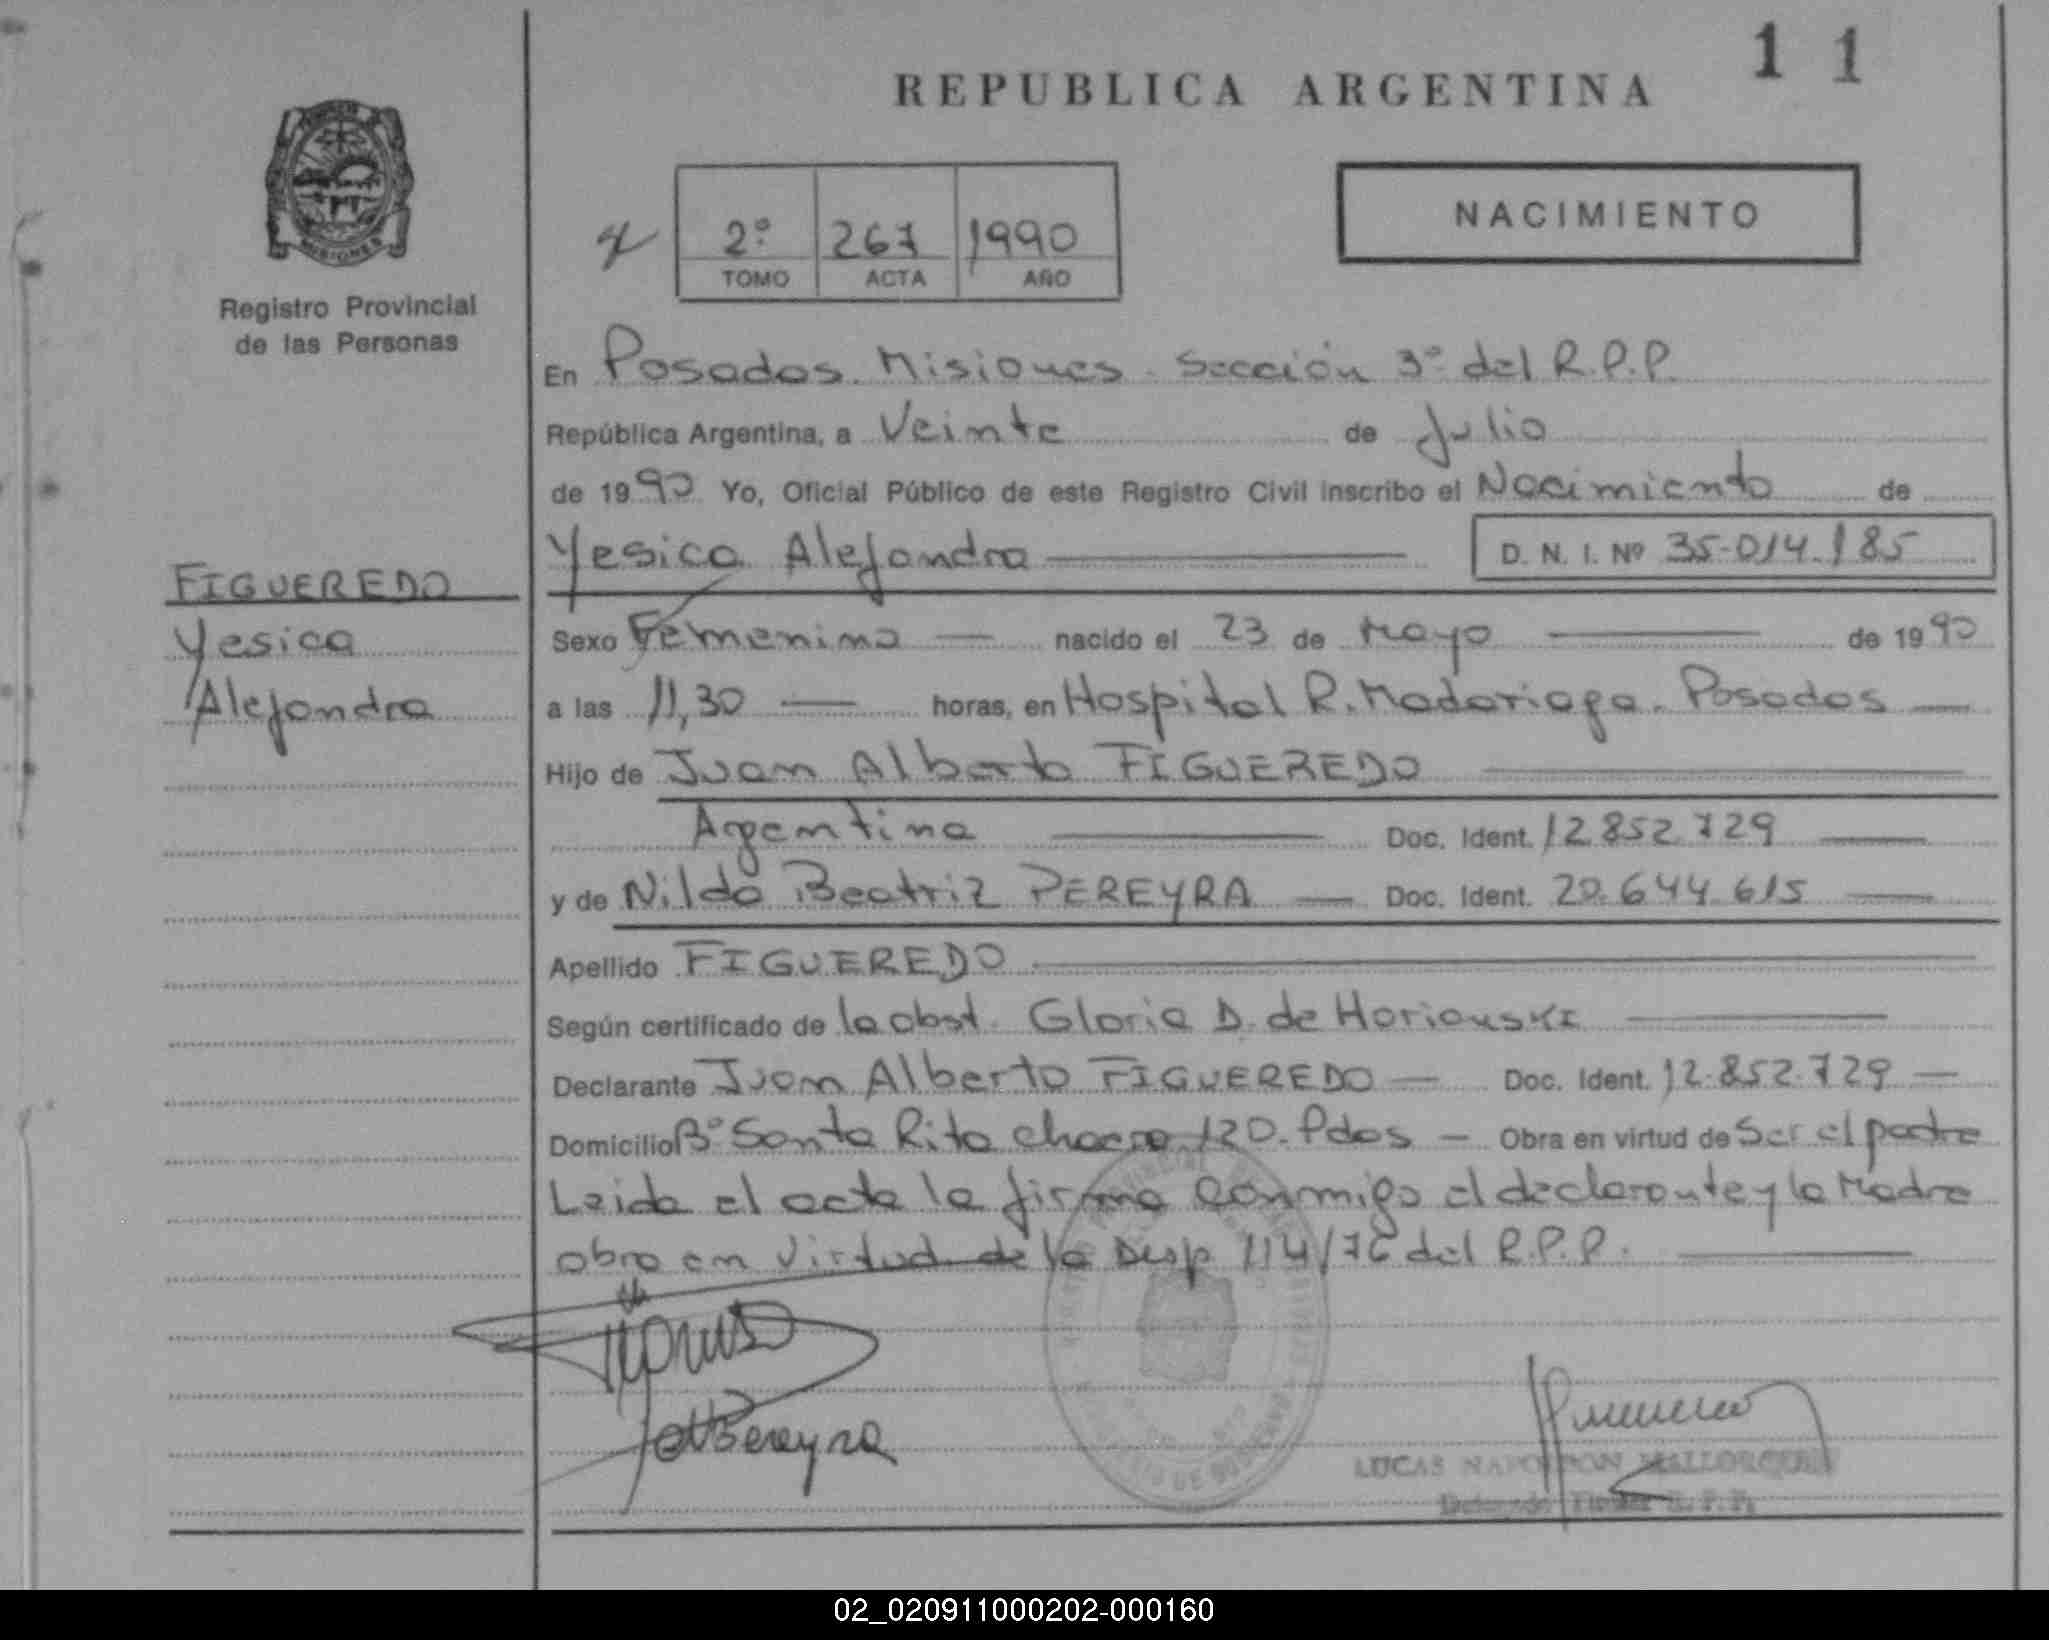 1 1
REPUBLICA ARGENTINA
NACIMIENTO
2º 267 1990
TOMO ACTA AÑO
MISIONES
Registro Provincial
de las Personas
En Posadas. Misiones. Sección 3º del R.P.P.
República Argentina, a Veinte de Julio
de 1990 Yo, Oficial Público de este Registro Civil inscribo el Nacimiento de
Yesica Alejandra D. N. I. Nº 35.014.185
FIGUEREDO
Yesica
Alejandra
Sexo Femenino nacido el 23 de Mayo de 1990
a las 11,30 horas, en Hospital R. Madariaga. Posadas
Hijo de Juan Alberto FIGUEREDO
Argentina Doc. Ident. 12.852.729
y de Nilda Beatriz PEREYRA Doc. Ident. 20.644.615
Apellido FIGUEREDO
Según certificado de la obst. Gloria D. de
Declarante Juan Alberto FIGUEREDO Doc. Ident. 12.852.729
Domicilio Bº Santa Rita chacra 120. Pdas Obra en virtud de Ser el padre
Leida el acta la firma conmigo el declarante y la Madre
obra en virtud de la Disp 114/76 del R.P.P.
Pereyra
LUCAS NAPOLEON MALLORQUIN
R. P. P.
02_020911000202-000160